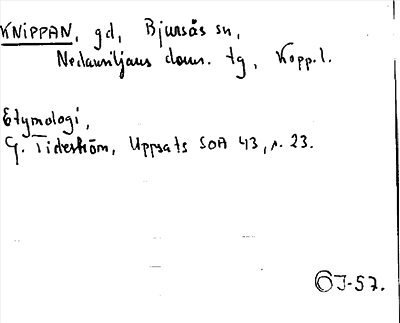 KNIPPAN, gd, Bjursås sn,
Nedansiljans doms. tg, Kopp.l.
Etymologi,
G. Tideström, Uppsats SOA 43, s. 23.
ÖJ-57.